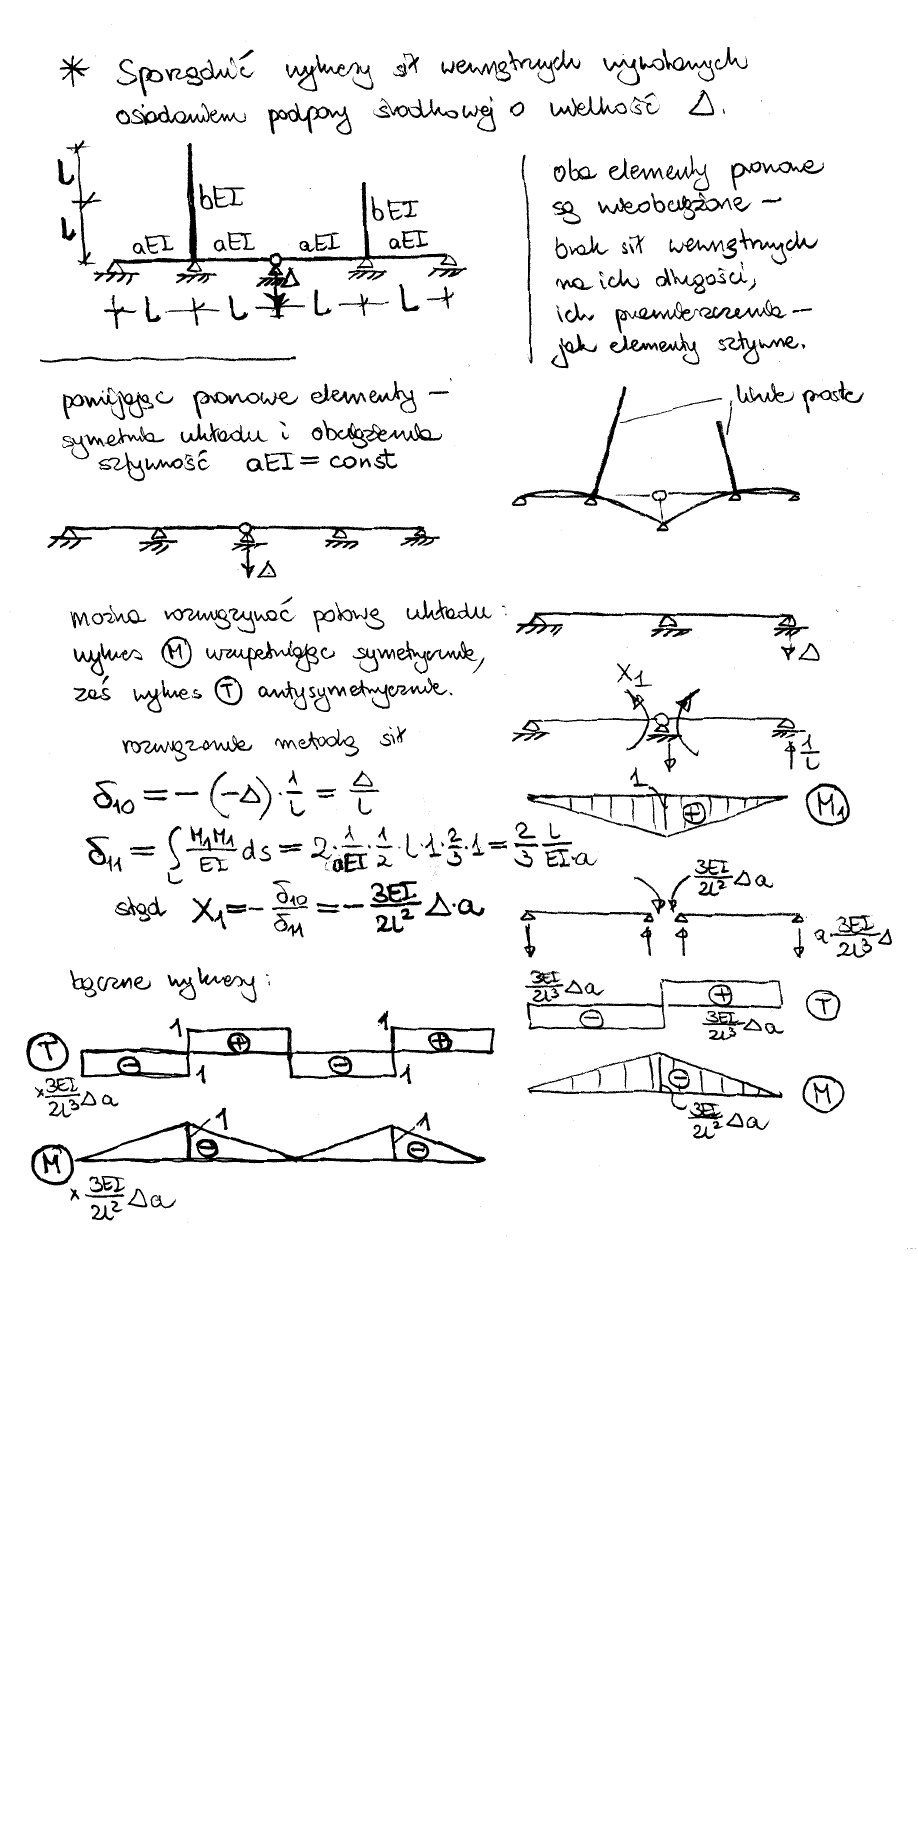 * Sporządzić wykresy sił wewnętrznych wywołanych
osiadaniem podpory środkowej o wielkość Δ.
L
L
bEI
bEI
aEI aEI aEI aEI
Δ
L L L L
oba elementy pionowe
są nieobciążone –
brak sił wewnętrznych
na ich długości,
ich przemieszczenia –
jak elementy sztywne.
linie proste
pomijając pionowe elementy –
symetria układu i obciążenia
sztywność aEI = const
Δ
można rozwiązywać połowę układu:
wykres M uzupełniając symetrycznie,
zaś wykres T antysymetrycznie.
Δ
rozwiązanie metodą sił
X₁
1/L
δ₁₀ = – (–Δ) · 1/L = Δ/L
1
+
M₁
δ₁₁ = ∫L M₁M₁/EI ds = 2 · 1/aEI · 1/2 · l · 1 · 2/3 · 1 = 2/3 L/EI·a
stąd X₁ = – δ₁₀/δ₁₁ = – 3EI/2l² Δ·a
3EI/2l² Δa
a · 3EI/2l³ Δ
łączne wykresy:
3EI/2l³ Δa
–
+
3EI/2l³ Δa
T
T
1 1
– + – +
1 1
× 3EI/2l³ Δa
–
3EI/2l² Δa
M
M
1 1
– –
× 3EI/2l² Δa